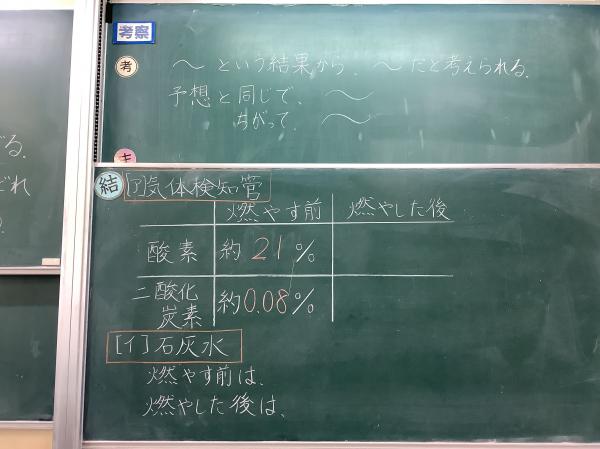 考察
考
〜という結果から、〜だと考えられる。
予想と同じで、〜
ちがって、〜
キ
結
[ア]気体検知管
燃やす前 燃やした後
酸素 約21%
二酸化炭素 約0.08%
[イ]石灰水
燃やす前は、
燃やした後は、
る。
どれ